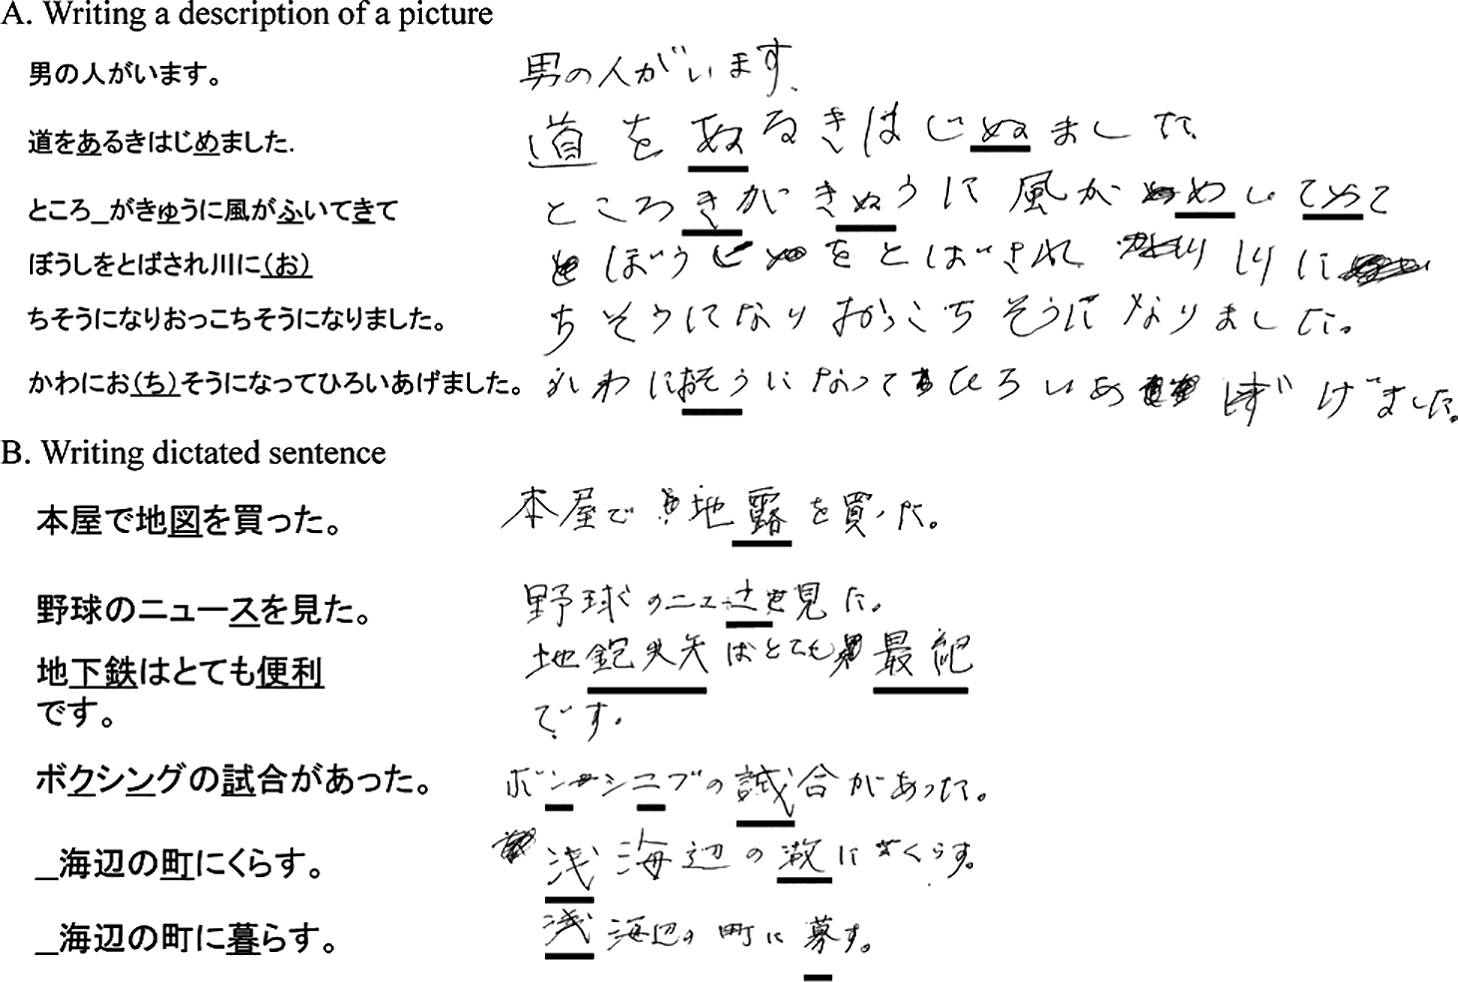 A. Writing a description of a picture
男の人がいます。 男の人がいます.
道をあるきはじめました. 道をぬるきはじぬました
ところ_がきゅうに風がふいてきて ところきがきぬうに風が めしてて
ぼうしをとばされ川に(お) ぼうし をとばされ りに
ちそうになりおっこちそうになりました。 ちそうになりおっこちそうになりました。
かわにお(ち)そうになってひろいあげました。 わにおそうになって ひろいあ げました。
B. Writing dictated sentence
本屋で地図を買った。 本屋で 地露を買った。
野球のニュースを見た。 野球のニュ 見た。
地下鉄はとても便利 地 矢はとても 最
です。 です。
ボクシングの試合があった。 ボン シニブの誠合があった。
_海辺の町にくらす。 浅海辺の に くらす。
_海辺の町に暮らす。 浅海辺の町に募す。